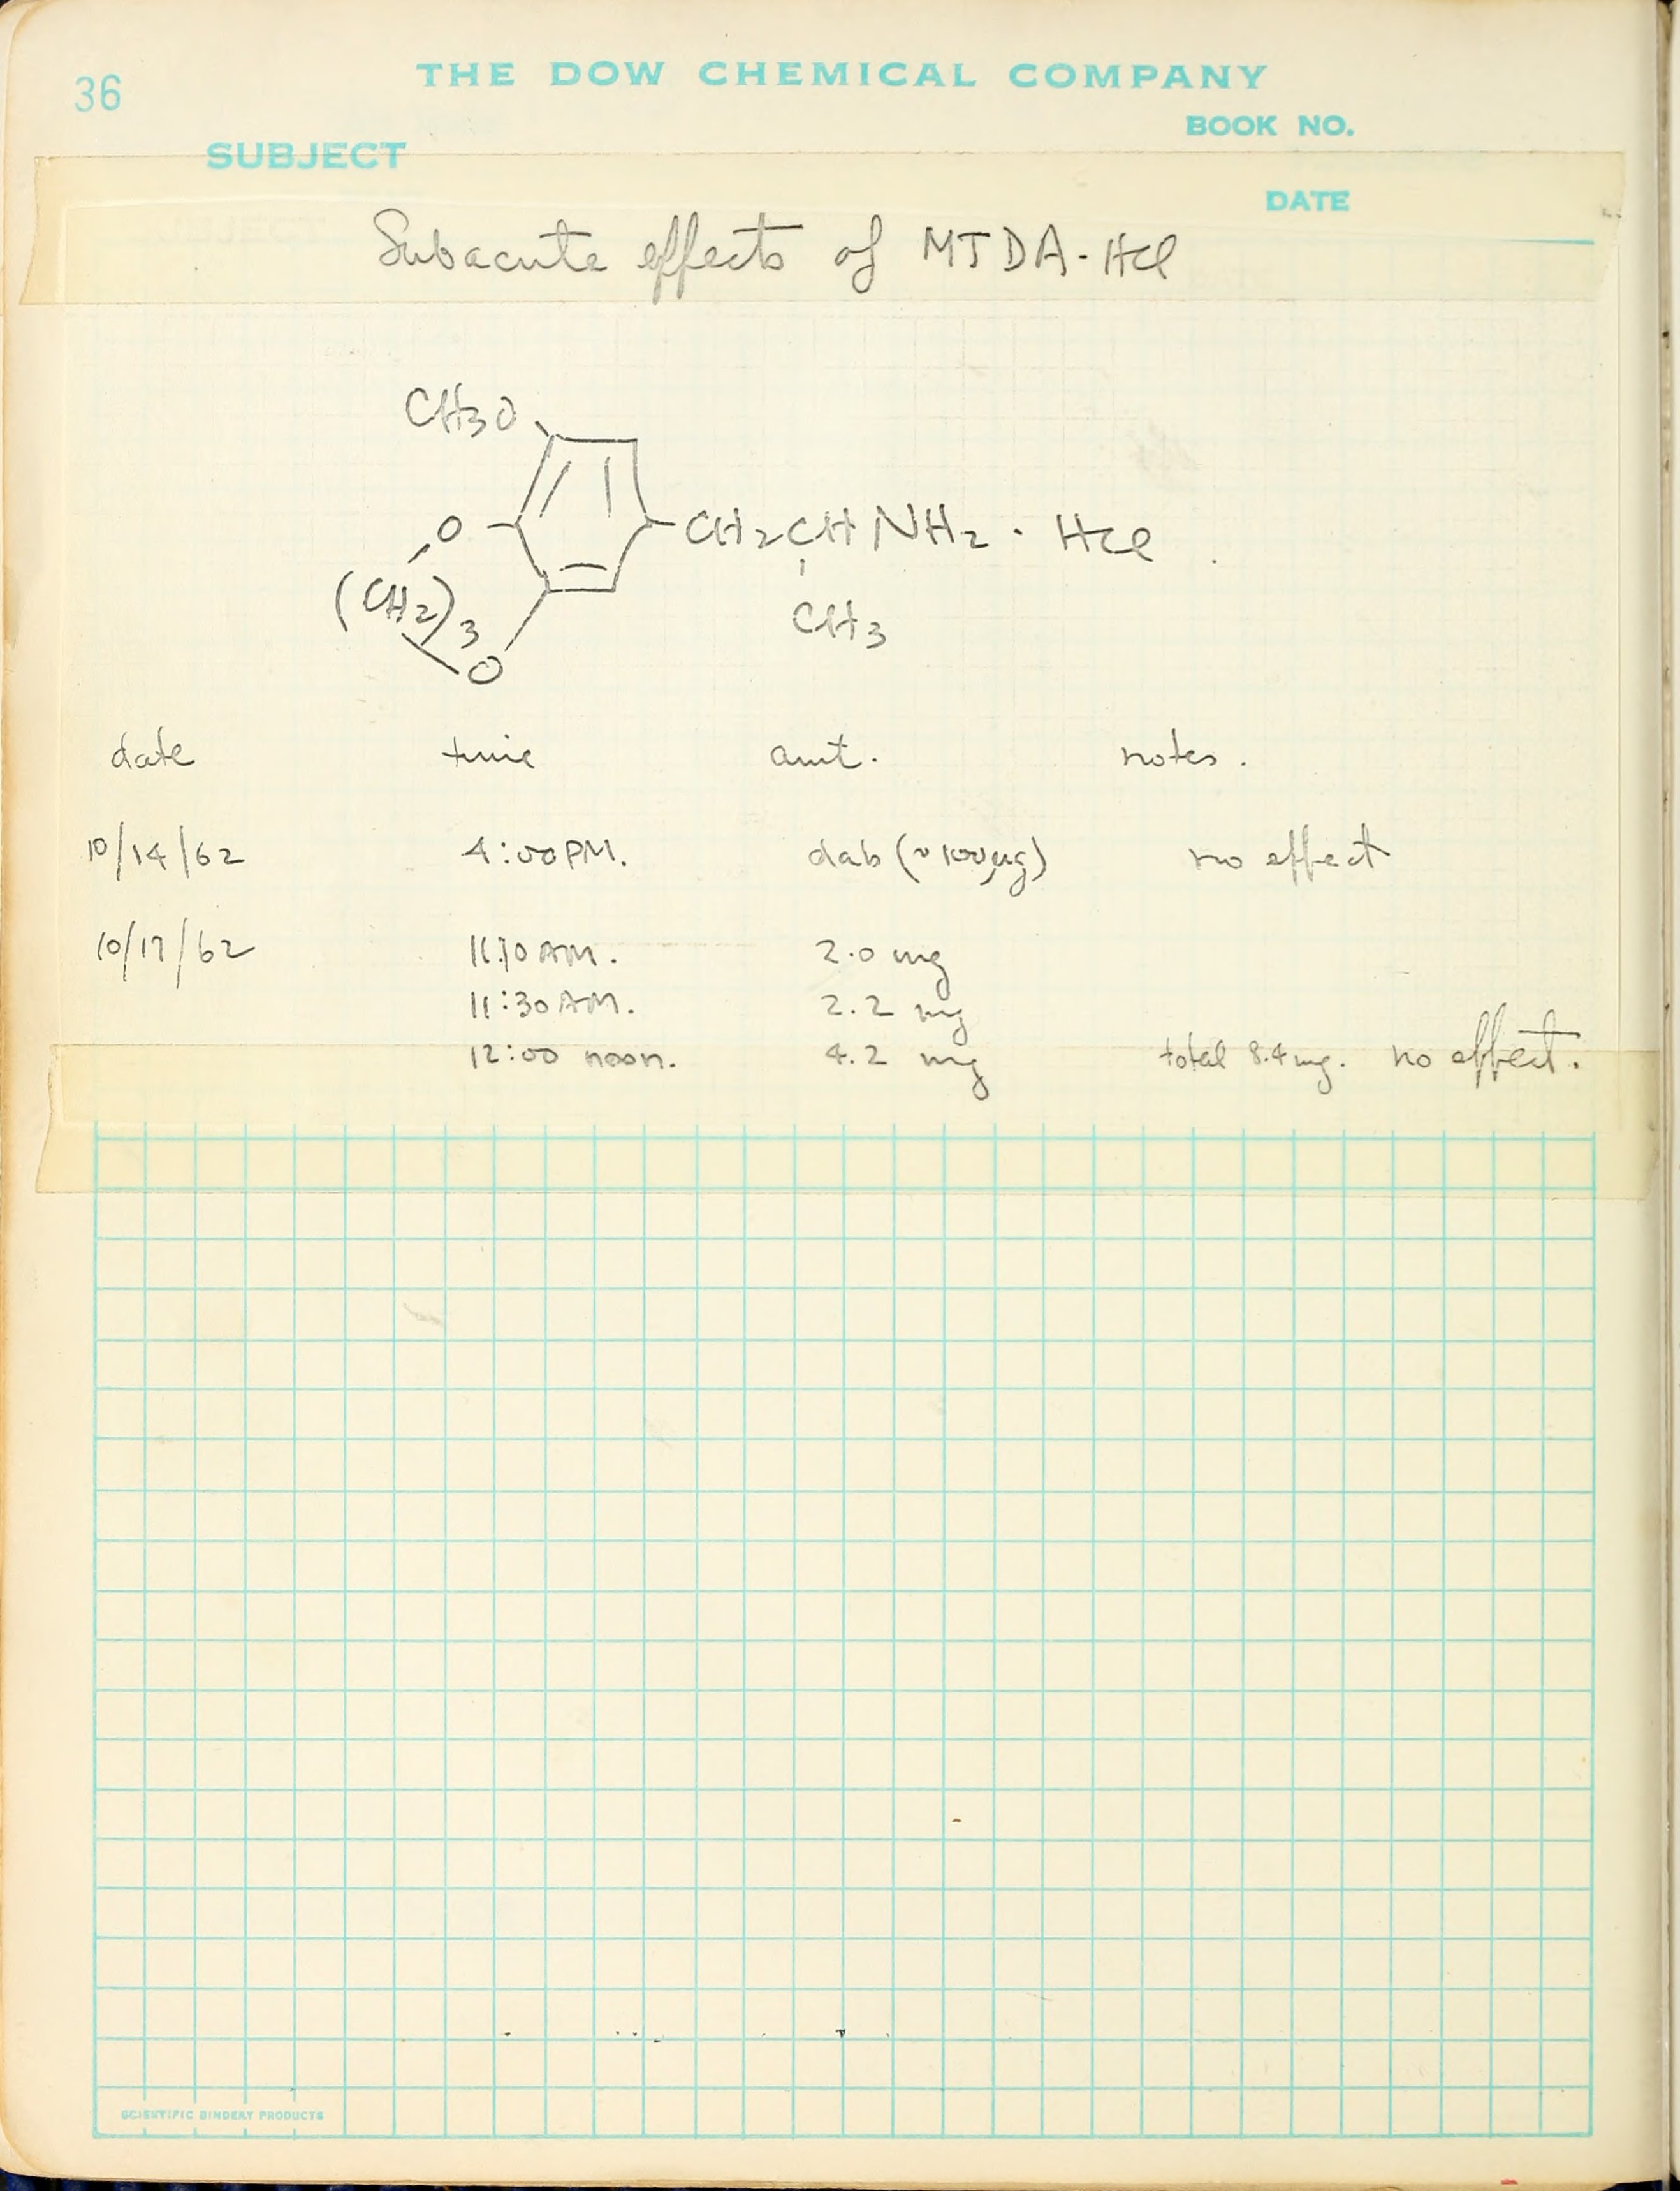 36
THE DOW CHEMICAL COMPANY
BOOK NO.
SUBJECT
DATE
Subacute effects of MTDA·HCl
CH3O
O CH2CHNH2 · HCl
(CH2)3 CH3
O
date time amt. notes.
10/14/62 4:00 PM. dab (~100μg) no effect
10/17/62 11:10 AM. 2.0 mg
11:30 AM. 2.2 mg
12:00 noon. 4.2 mg total 8.4 mg. no effect.
SCIENTIFIC BINDERY PRODUCTS